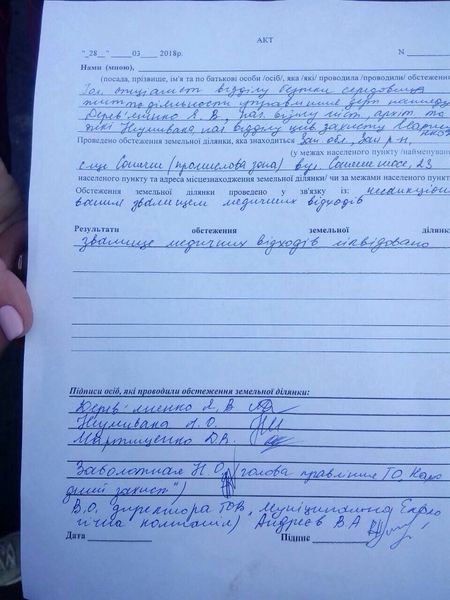 АКТ
"_28__" ______03____ 2018р. N
Нами (мною),
(посада, прізвище, ім'я та по батькові особи /осіб/, яка /які/ проводила /проводили/ обстеження
відділу безпеки середовища
життєдіяльності управління держ нагляду
Дерев'яненко Я. В, нач. відділу міст, архіт та
жкг Неумивака, нач відділу цив. захисту
Проведено обстеження земельної ділянки, яка знаходиться Зап обл, Зап р-н,
(у межах населеного пункту /найменування
с-ще Сонячне (промислова зона) вул Сонячне шосе, 23
населеного пункту та адреса місцезнаходження земельної ділянки/ чи за межами населеного пункту
Обстеження земельної ділянки проведено у зв'язку із: несанкціоно
ваним звалищем медичних відходів
Результати обстеження земельної ділянки
звалище медичних відходів ліквідовано
Підписи осіб, які проводили обстеження земельної ділянки:
Дерев'яненко Я. В
Неумивака Л. О.
Мартищенко Д. В.
Заболотная Н. О. (голова правління ГО, Наро
дний захист")
В.О. директора ТОВ, Муніципальна Еколо
гічна компанія) Андреєв В А
Дата Підпис